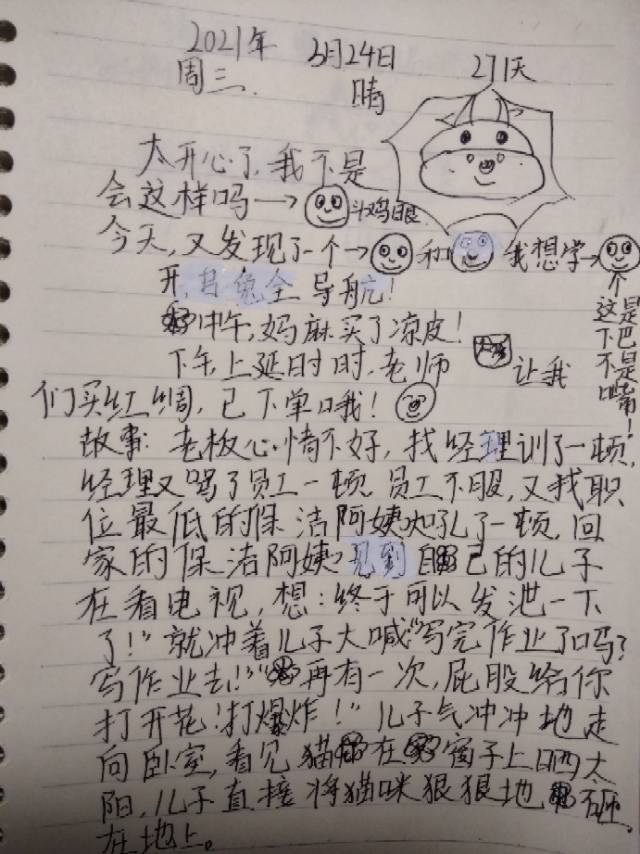 2021年 3月24日 271天
周三. 晴
太开心了,我不是
会这样吗→斗鸡眼
今天,又发现了一个→和 我想学→
开,自 全 导航!
中午,妈麻买了凉皮!
下午上延时时,老师 让我
们买红绸,已下单哦!
个
这是
下巴
不是
嘴!
故事:老板心情不好,找经理训了一顿,
经理又骂了员工一顿,员工不服,又找职
位最低的保洁阿姨 吼了一顿,回
家的保洁阿姨见到自己的儿子
在看电视,想:终于可以发泄一下
了!”就冲着儿子大喊:“写完作业了吗?
写作业去!”“再有一次,屁股给你
打开花!打爆炸!”儿子气冲冲地走
向卧室,看见猫在窗子上晒太
阳,儿子直接将猫咪狠狠地砸
在地上。